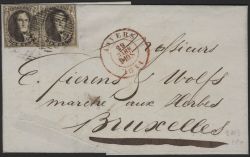 ANVERS
Messieurs
C. Fierens & Wolfs
marché aux Herbes
Bruxelles